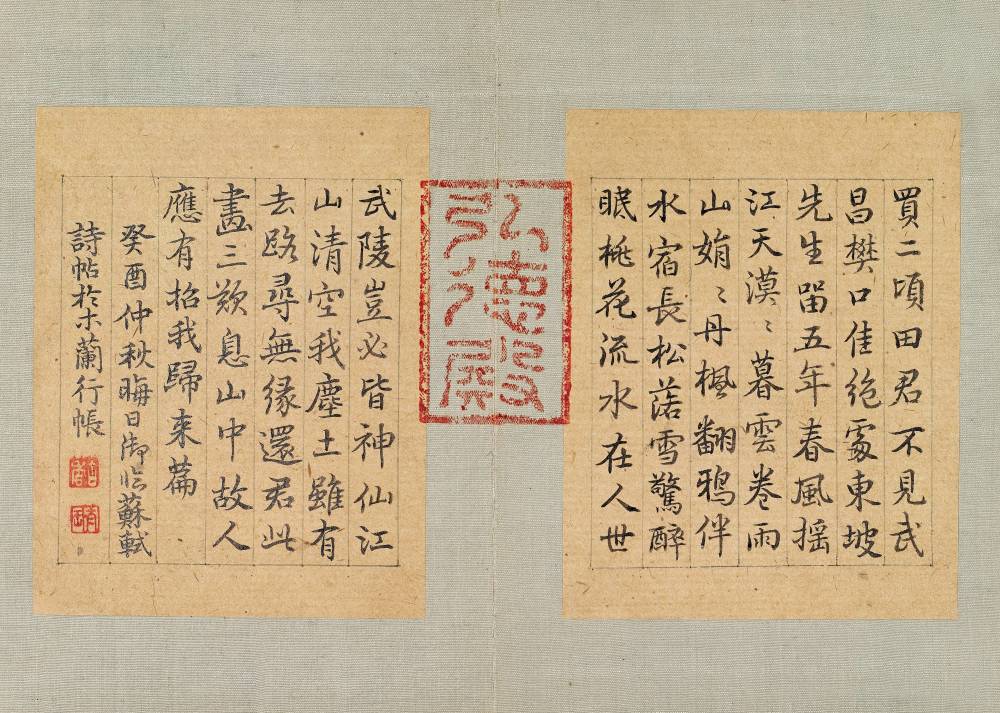 買二頃田君不見武
昌樊口佳絕處東坡
先生留五年春風搖
江天漠〻暮雲卷雨
山娟〻丹楓翻鴉伴
水宿長松落雪驚醉
眠桃花流水在人世
武陵豈必皆神仙江
山清空我塵土雖有
去路尋無緣還君此
畫三歎息山中故人
應有招我歸來篇
癸酉仲秋晦日御臨蘇軾
詩帖於木蘭行帳